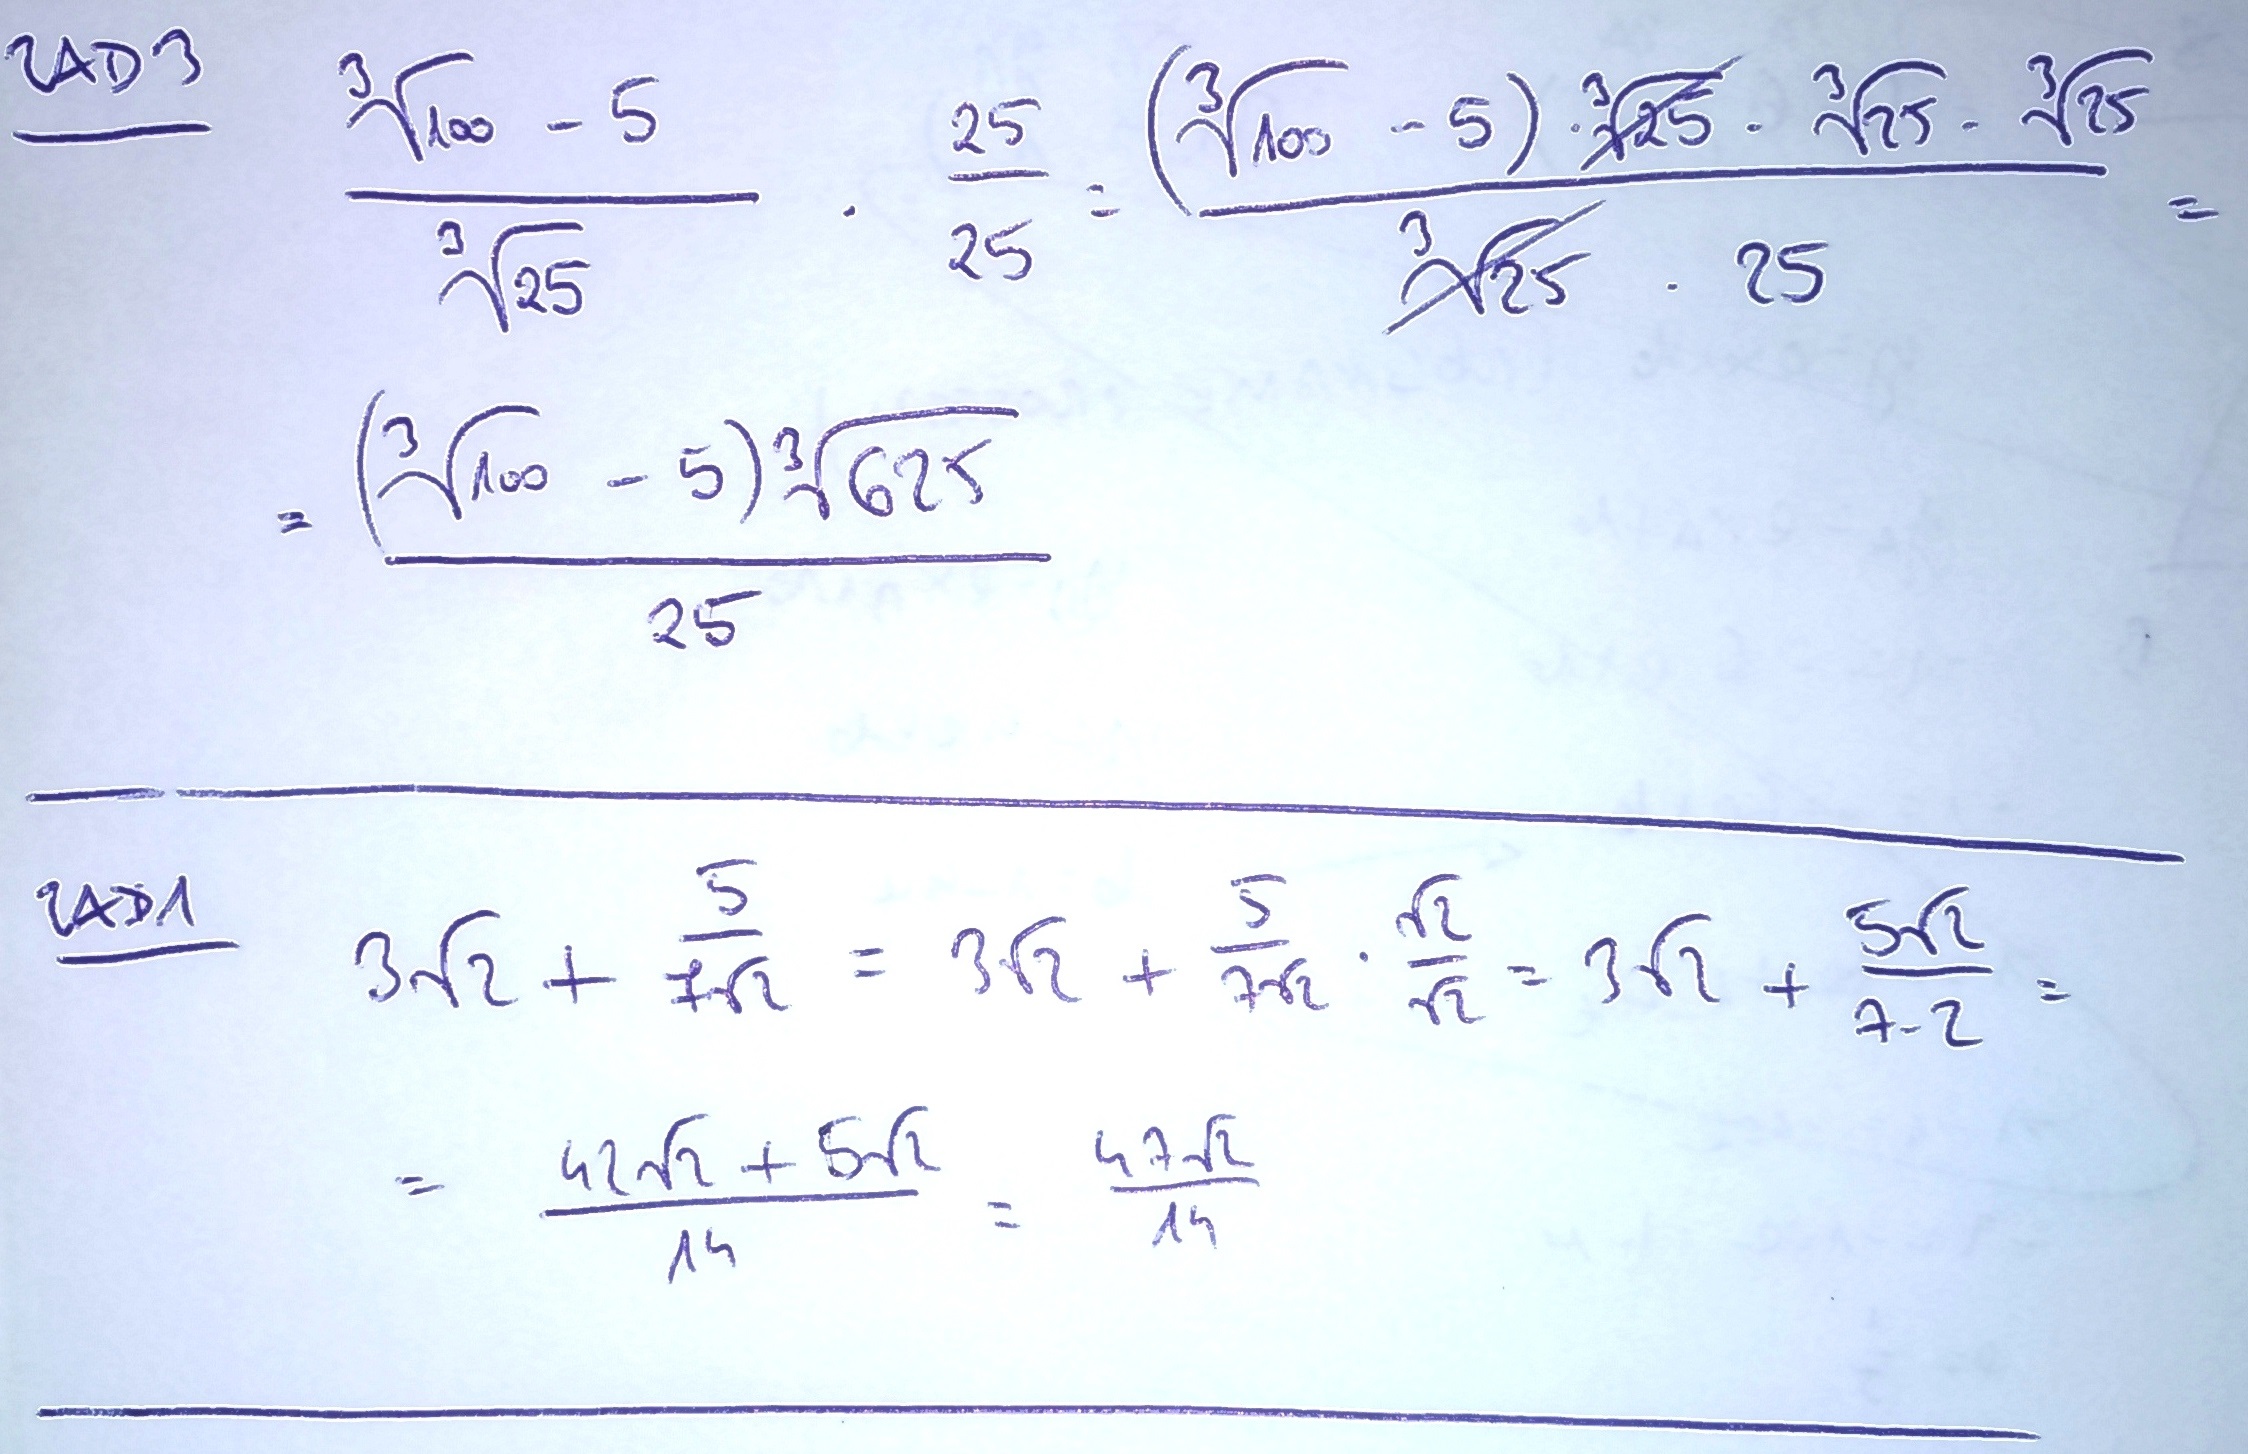 ZAD 3 (∛100 - 5)/∛25 · 25/25 = ((∛100 - 5) · ∛25 · ∛25 · ∛25)/(∛25 · 25) =
= ((∛100 - 5)∛625)/25
ZAD 1 3√2 + 5/(7√2) = 3√2 + 5/(7√2) · √2/√2 = 3√2 + 5√2/(7·2) =
= (42√2 + 5√2)/14 = 47√2/14